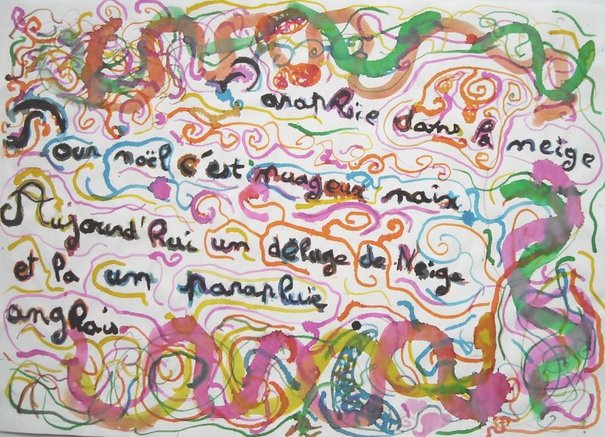 Parapluie dans la neige
Pour noël c'est nuageux mais
Aujourd'hui un déluge de Neige
et la un parapluie
anglais